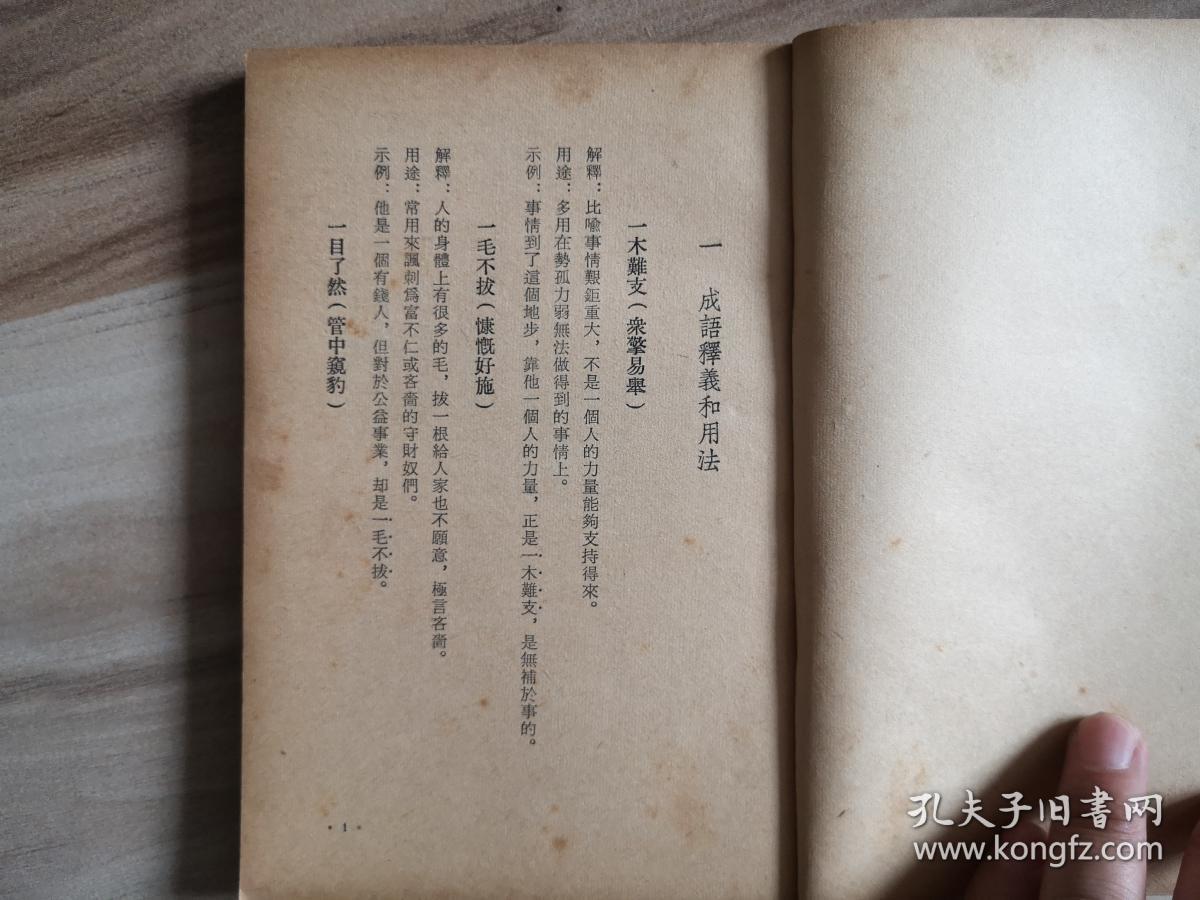 一　成語釋義和用法
一木難支（衆擎易舉）
解釋：比喩事情艱鉅重大，不是一個人的力量能夠支持得來。
用途：多用在勢孤力弱無法做得到的事情上。
示例：事情到了這個地步，靠他一個人的力量，正是一木難支，是無補於事的。
一毛不拔（慷慨好施）
解釋：人的身體上有很多的毛，拔一根給人家也不願意，極言吝嗇。
用途：常用來諷刺爲富不仁或吝嗇的守財奴們。
示例：他是一個有錢人，但對於公益事業，却是一毛不拔。
一目了然（管中窺豹）
· 1 ·
孔夫子旧书网
www.kongfz.com